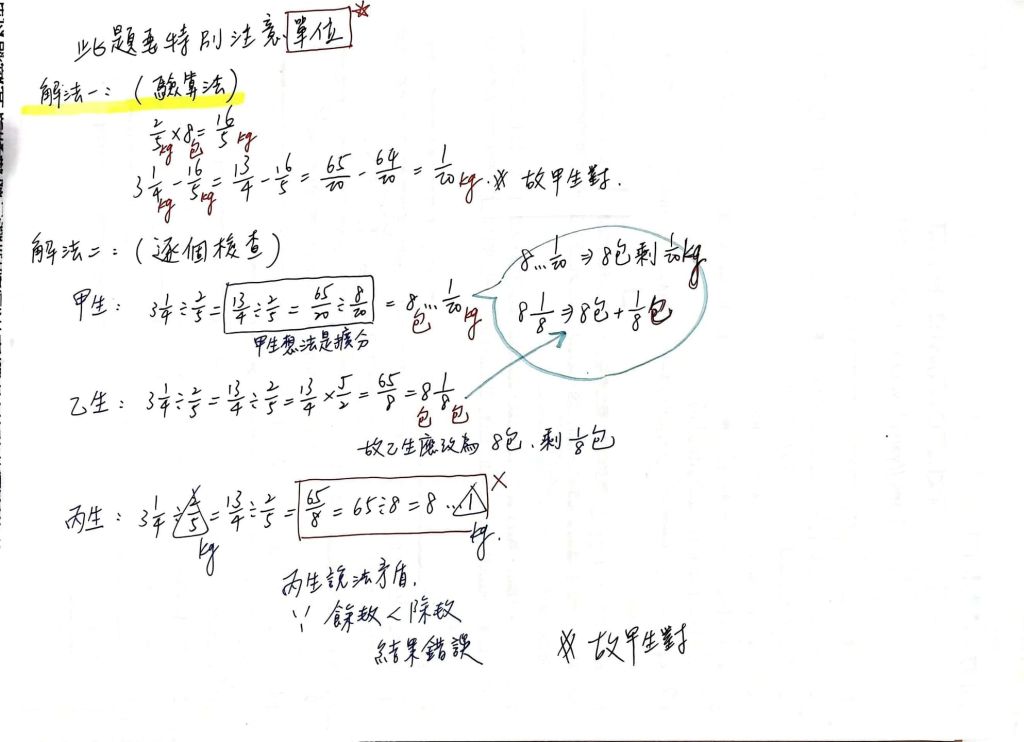 此題要特別注意單位☆
解法一:(驗算法)
2/5 kg × 8包 = 16/5 kg
3 1/4 kg - 16/5 kg = 13/4 - 16/5 = 65/20 - 64/20 = 1/20 kg.※ 故甲生對.
解法二:(逐個檢查)
甲生: 3 1/4 ÷ 2/5 = 13/4 ÷ 2/5 = 65/20 ÷ 8/20 = 8包…1/20 kg
甲生想法是擴分
8…1/20 ⇒ 8包剩1/20kg
8 1/8 ⇒ 8包+1/8包
乙生: 3 1/4 ÷ 2/5 = 13/4 ÷ 2/5 = 13/4 × 5/2 = 65/8 = 8包 1/8包
故乙生應改為 8包、剩 1/8包
丙生: 3 1/4 ÷ 2/5 kg = 13/4 ÷ 2/5 = 65/8 = 65÷8 = 8…1 kg. ×
丙生說法矛盾.
∵ 餘數 < 除數
結果錯誤
※ 故甲生對